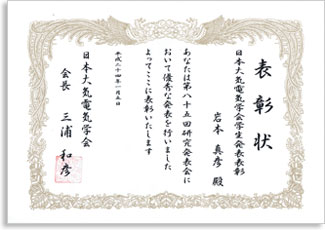 表彰状
日本大気電気学会学生発表表彰
岩本 真彦 殿
あなたは第八十五回研究発表会に
おいて優秀な発表を行いました
よってここに表彰いたします
平成二十四年一月五日
日本大気電気学会
会長 三浦 和彦